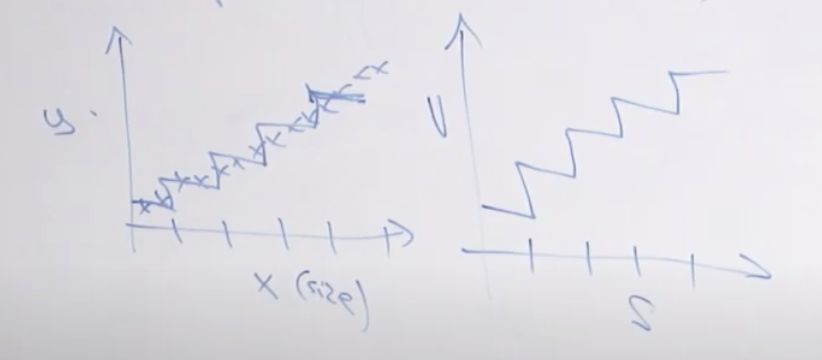 y
x (size)
V
S